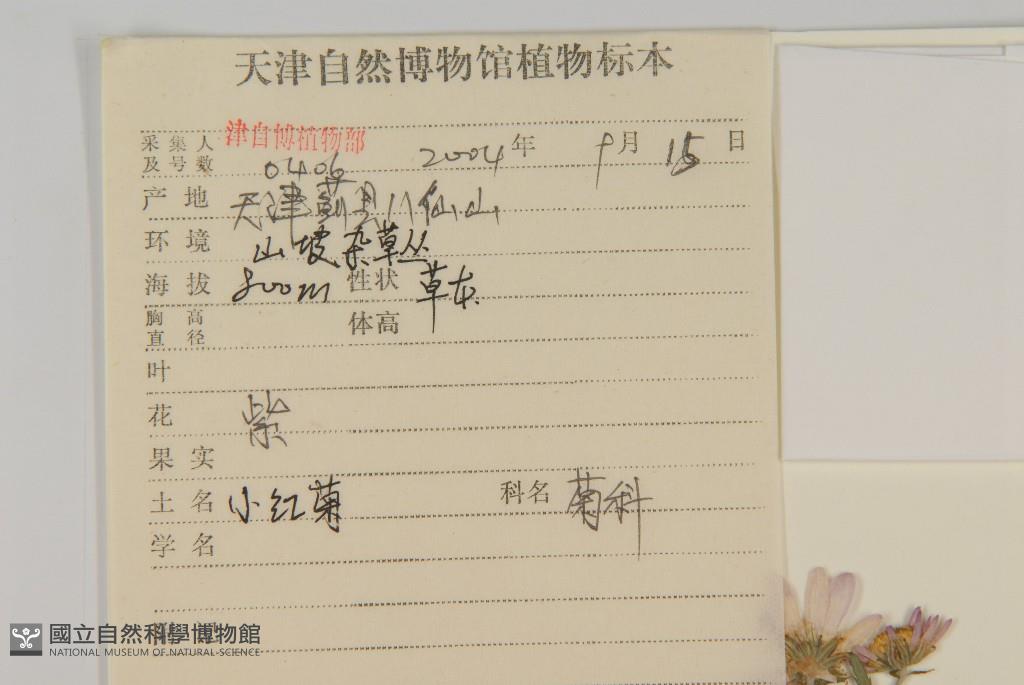 天津自然博物馆植物标本
采集人及号数 津自博植物部 0406 2004年 9月 15日
产地 天津蓟县八仙山
环境 山坡杂草丛
海拔 800m 性状 草本
胸高直径 体高
叶
花 紫
果实
土名 小红菊 科名 菊科
学名
國立自然科學博物館
NATIONAL MUSEUM OF NATURAL SCIENCE